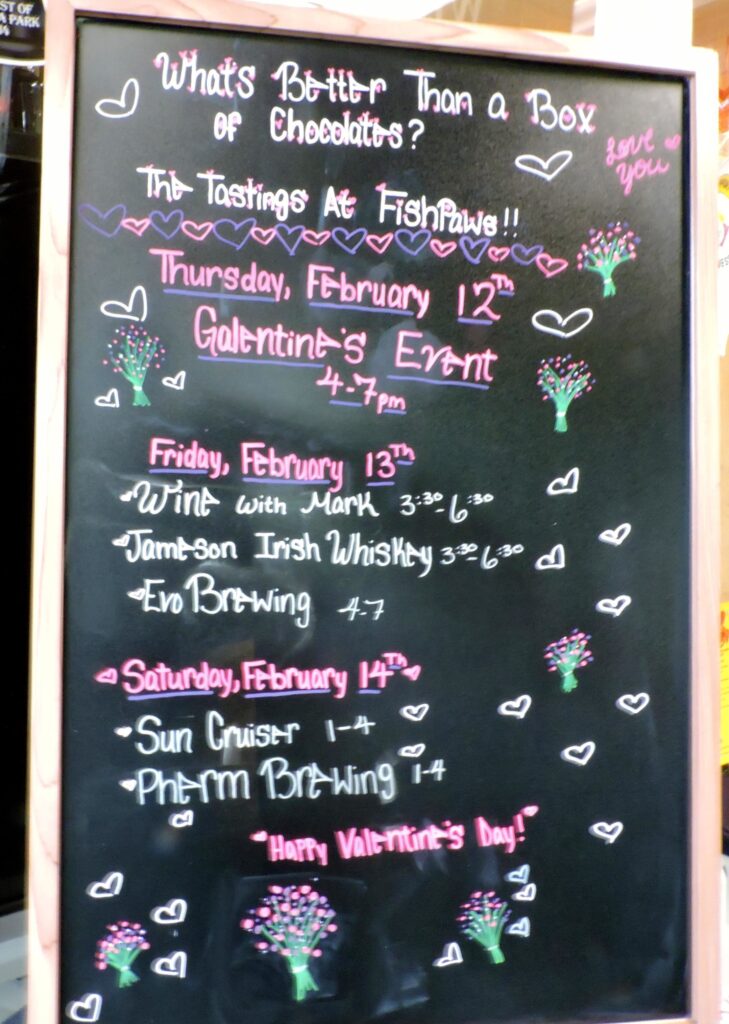 ST OF
A PARK
What's Better Than a Box
of Chocolates?
Love
You
The Tastings At FishPaws!!
Thursday, February 12th
Galentine's Event
4-7pm
Friday, February 13th
Wine with Mark 3:30-6:30
Jameson Irish Whiskey 3:30-6:30
Evo Brewing 4-7
Saturday, February 14th
Sun Cruiser 1-4
Pherm Brewing 1-4
Happy Valentine's Day!